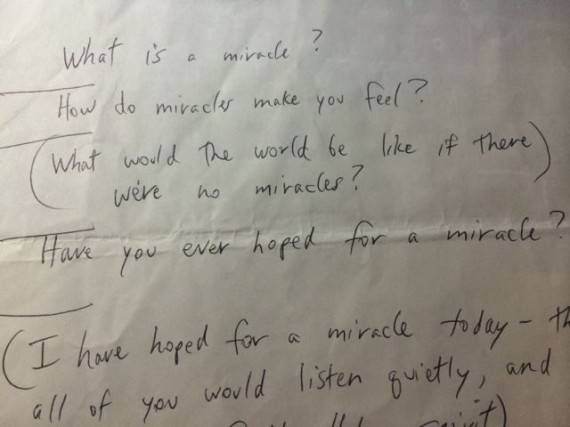 What is a miracle?
How do miracles make you feel?
(What would the world be like if there)
were no miracles?
Have you ever hoped for a miracle?
(I have hoped for a miracle today - th
all of you would listen quietly, and